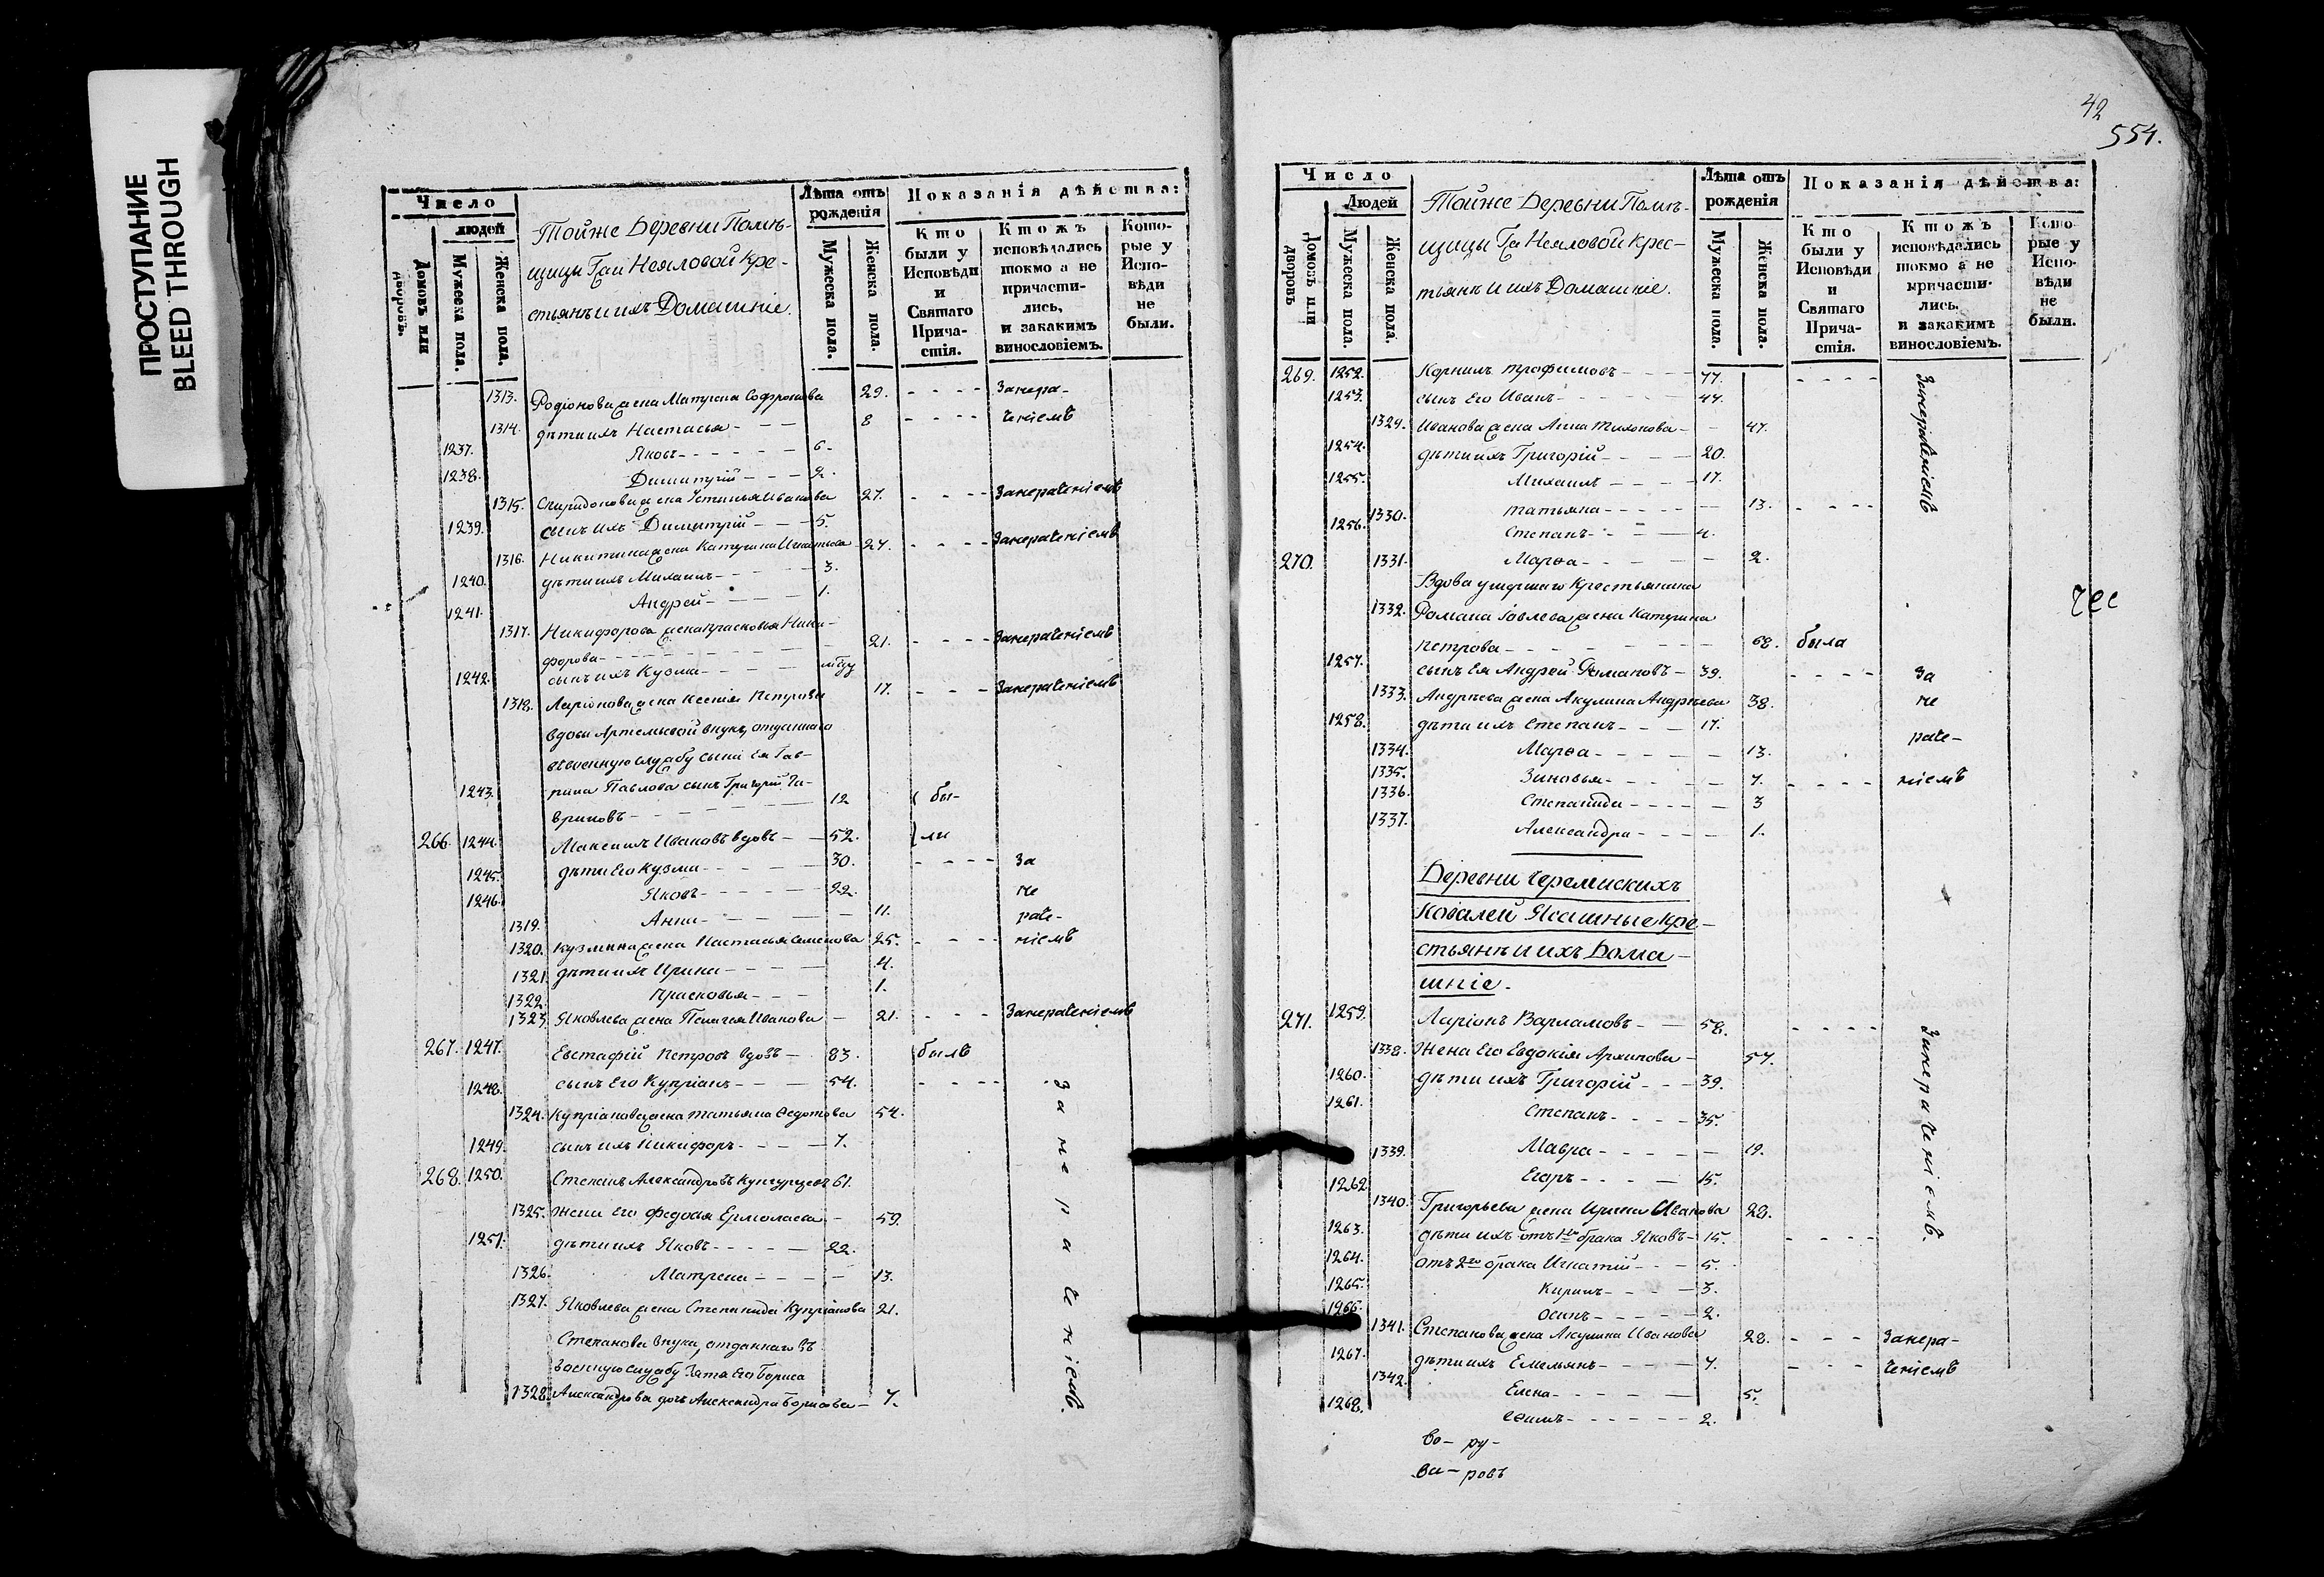 ПРОСТУПАНИЕ
BLEED THROUGH
Число
людей
Домовъ или дворовъ.
Мужеска пола.
Женска пола.
Тойже Деревни Помѣ-
щицы Гаи Нееловой Кре-
стьянъ и ихъ Домашніе.
Лѣта отъ рожденія
Мужеска пола.
Женска пола.
Показанія дѣйства:
Кто были у Исповѣди и Святаго Причастія.
Ктожъ исповѣдались токмо а не причастились, и закакимъ винословіемъ.
Которые у Исповѣди не были.
1313. Родіонова жена Матрена Софронова 29. Занера-
1314. дѣти ихъ Настасья 8 ченіемъ
1237. Яковъ 6.
1238. Димитрій 2.
1315. Спиридонова жена Устинья Иванова 27. Занераченіемъ
1239. сынъ ихъ Димитрій 5.
1316. Никитина жена Катерина Игнатьева 27. Занераченіемъ
1240. дѣти ихъ Михаилъ 3.
1241. Андрей 1.
1317. Никифорова жена Прасковья Ники-
форова 21. Занераченіемъ
1242. сынъ ихъ Кузма
1318. Ларіонова жена Ксенія Петрова 17. Занераченіемъ
вдовы Артемьевой внукъ, отданнаго
въ военную службу сына Ея Гав-
1243. рила Павлова сынъ Григорій Га-
вриловъ 12 бы-
266. 1244. Максимъ Ивановъ вдовъ 52. ли
1245. дѣти Его Кузма 30. За
1246. Яковъ 22. не
1319. Анна 11. раче-
1320. Кузмина жена Настасья Семенова 25. ніемъ
1321. дѣти ихъ Ирина 4.
1322. Прасковья 1.
1323. Яковлева жена Пелагея Иванова 21. Занераченіемъ
267. 1247. Евстафій Петровъ вдовъ 83. былъ
1248. сынъ Его Купріанъ 54. Занераченіемъ.
1324. Купріанова жена Татьяна Ѳедотова 54.
1249. сынъ ихъ Никифоръ 7.
268. 1250. Степанъ Александровъ 61.
1325. жена Его Федосья Ермолаева 59.
1251. дѣти ихъ Яковъ 22.
1326. Матрена 13.
1327. Яковлева жена Степанида Купріанова 21.
Степанова внука, отданнаго въ
военную службу Зятя Его Бориса
1328. Александрова дочь Александра Борисова 7.
42
554.
Число
Людей
Домовъ или дворовъ
Мужеска пола.
Женска пола.
Тойже Деревни Помѣ-
щицы Га Нееловой Крес-
тьянъ и ихъ Домашніе.
Лѣта отъ рожденія
Мужеска пола.
Женска пола.
Показанія дѣйства:
Кто были у Исповѣди и Святаго Причастія.
Ктожъ исповѣдались токмо а не причастились. и закакимъ винословіемъ.
Которые у Исповѣди не были.
269. 1252. Корнилъ Трофимовъ 77. Занераченіемъ
1253. сынъ Его Иванъ 47.
1329. Иванова жена Анна Тихонова 47.
1254. дѣти ихъ Григорій 20.
1255. Михаилъ 17.
1330. Татьяна 13.
1256. Степанъ 4.
270. 1331. Марѳа 2.
Вдова умершаго Крестьянина
1332. Романа Іовлева жена Катерина
Петрова 68. была
1257. сынъ Ея Андрей Романовъ 39. За
1333. Андрѣева жена Акулина Андрѣева 38. не
1258. дѣти ихъ Степанъ 17. раче-
1334. Марѳа 13.
1335. Зиновья 7. ніемъ
1336. Степанида 3
1337. Александра 1.
Деревни Черемискихъ
Ковалей Ясашные Кре-
стьянъ и ихъ Дома-
шніе.
271. 1259. Ларіонъ Варламовъ 58. Занераченіемъ.
1338. Жена Его Евдокія Архипова 57.
1260. дѣти ихъ Григорій 39.
1261. Степанъ 35.
1339. Мавра 19.
1262. Егоръ 15.
1340. Григорьева жена Ирина Иванова 28.
1263. дѣти ихъ отъ 1го брака Яковъ 15.
1264. отъ 2го брака Игнатій 5.
1265. Кирилъ 3.
1266. Осипъ 2.
1341. Степанова жена Акулина Иванова 28. Занера-
1267. дѣти ихъ Емельянъ 7. ченіемъ
1342. Елена 5.
1268. Ефимъ 2.
во- ру-
ва- ровъ